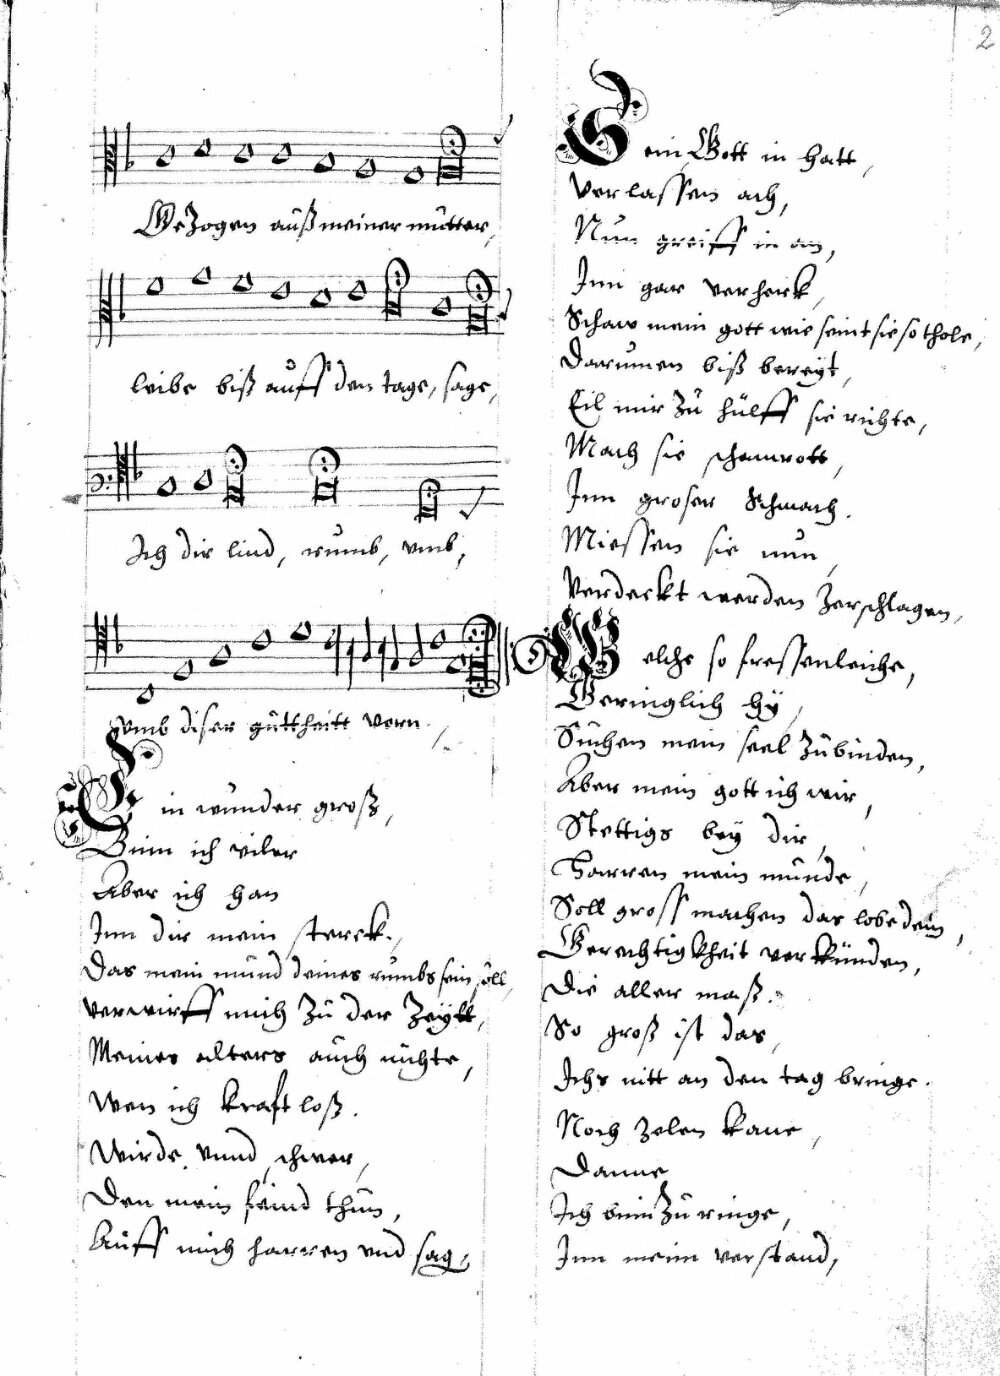 Gezogen auß meiner mutter,
leibe biß auff den tage, sage,
Ich dir lind, rumb, vmb,
vmb diser guttheitt vern.
Ein wunder groß,
Binn ich viler
Aber ich han
Inn dir mein sterck.,
Das mein mund deines rumbs sein soll,
verwirff mich zu der Zeytt,
Meines alters auch nichte,
Wen ich krafft loß.
Wirde vnnd schwer,
Den mein feind thun,
Auff mich harren vnd sag,
2
Sein Gott in hatt,
verlassen ach,
Nun greiff in an,
Inn gar verherk,
Schaw mein gott wie seint sie so thole,
Darumen biß bereyt,
Eil mir zu hülff sie richte,
Mach sie schamrott,
Inn groser Schmach.
Miessen sie nun,
Verdeckt werden Zerschlagen,
Welche so fressenleiche,
Geringlich hy,
Suchen mein seel Zubinden,
Aber mein gott ich wir,
Stettigs bey dir,
Harren mein munde,
Soll gross machen das lobe dein,
Gerechtigkheit verkünden,
Die aller maß.
So groß ist das,
Ichs nitt an den tag bringe.
Noch zelen kane,
Danne
Ich binn Zu ringe,
Inn meim verstand,